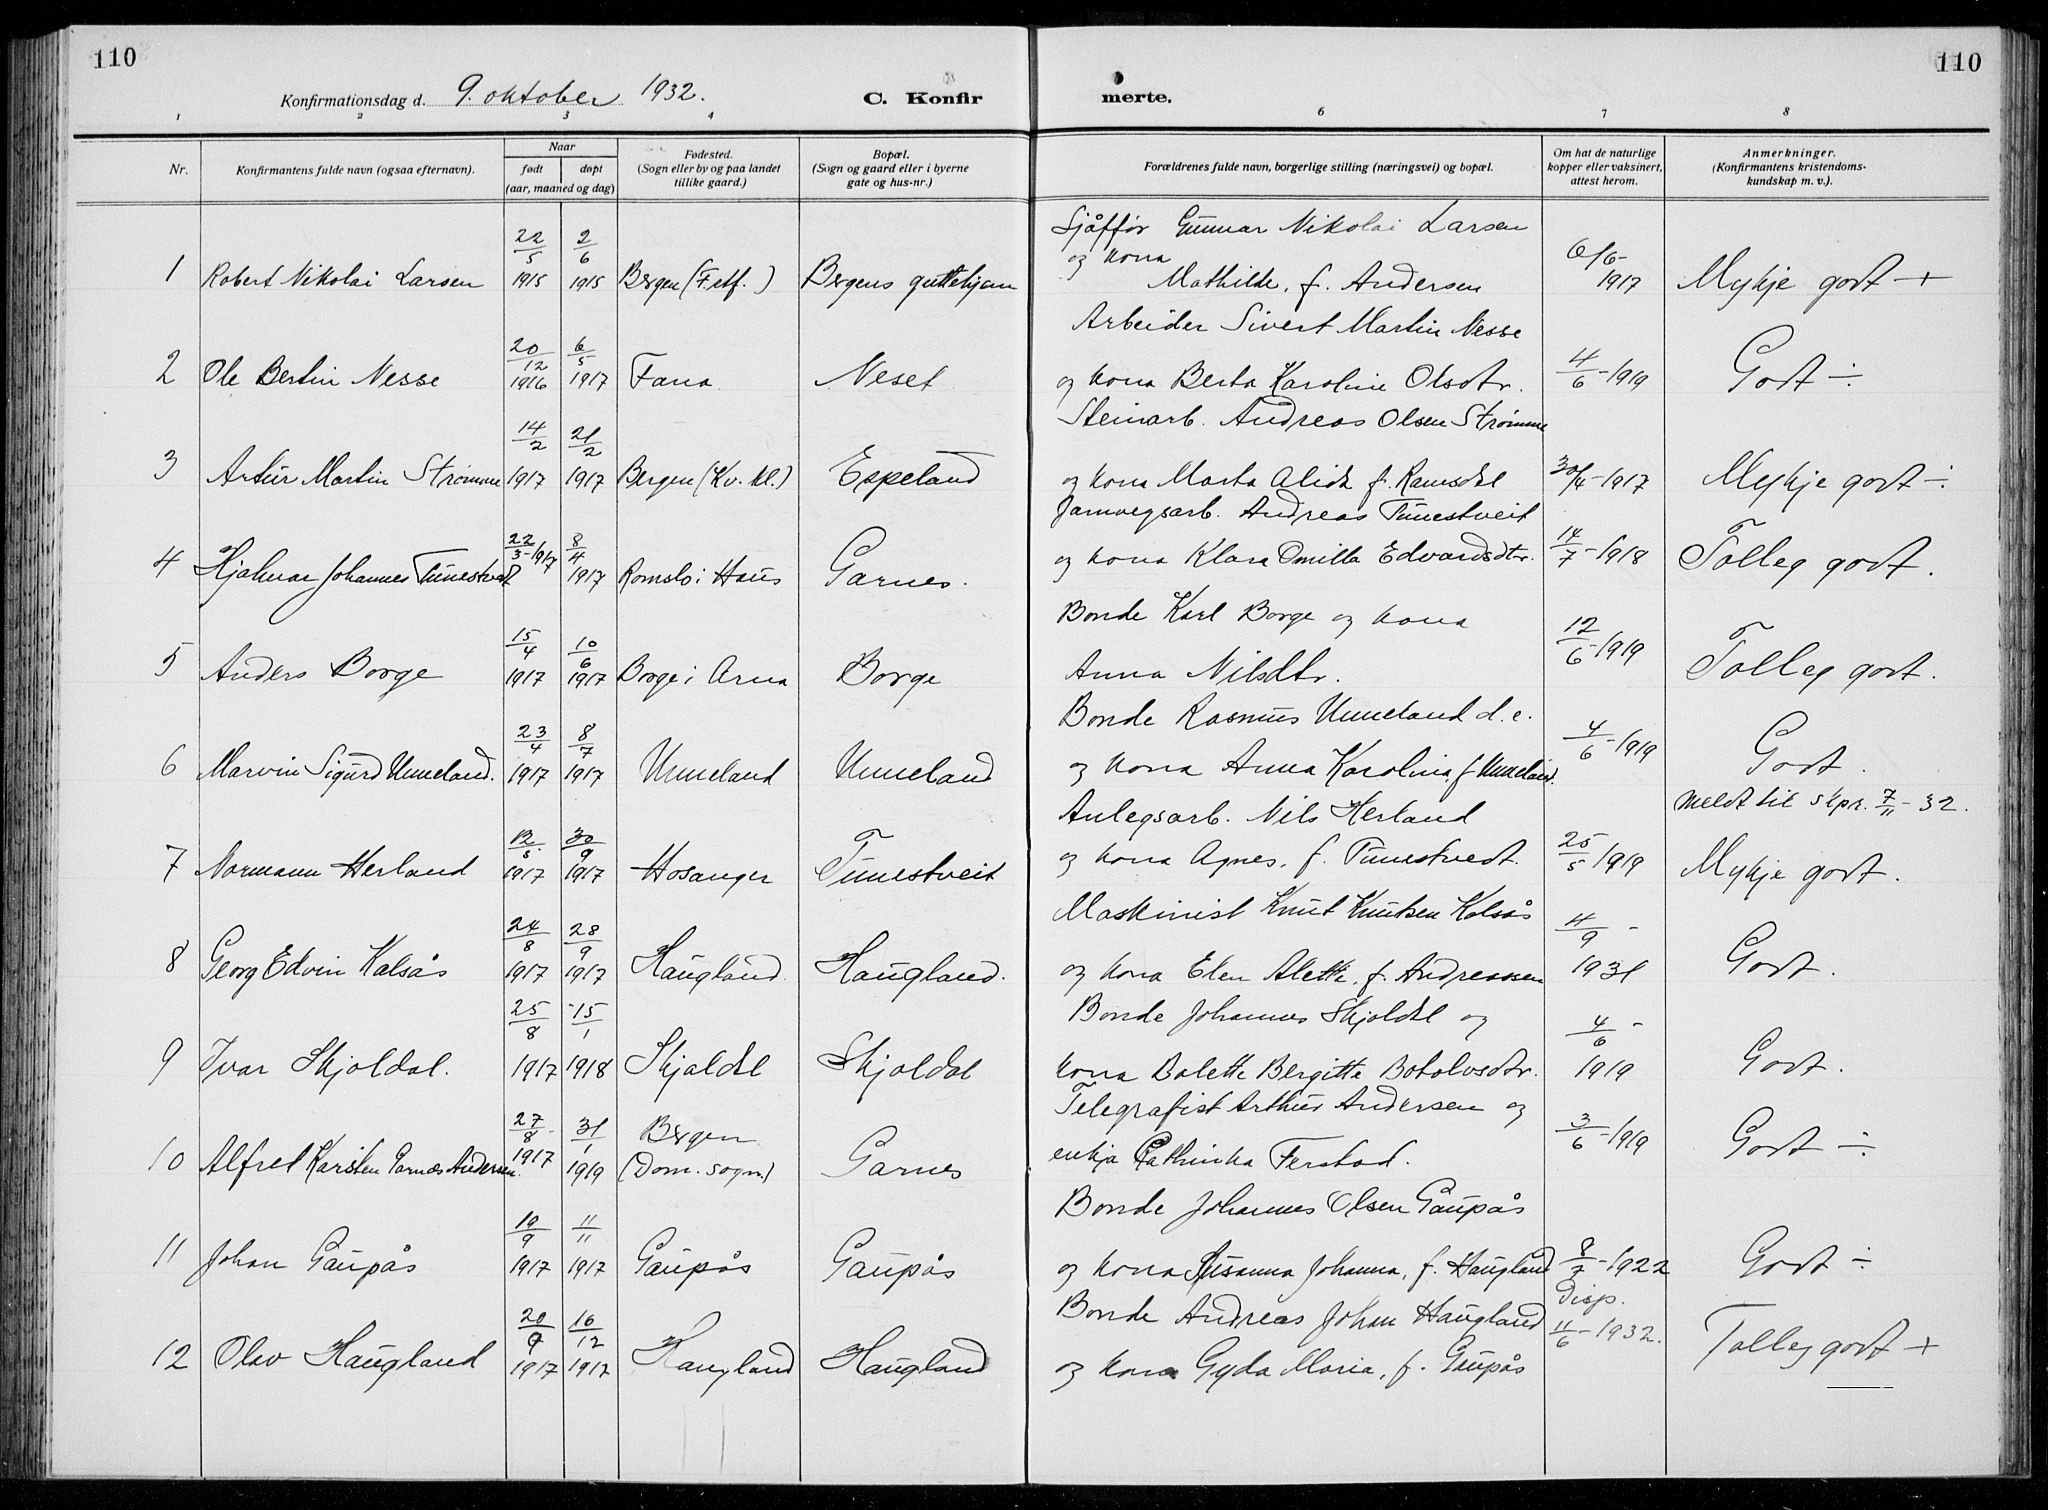 110
110
Konfirmationsdag d. 9. oktober 1932.
C. Konfir
merte.
1 2 3 4 5 6 7 8
Nr.
Konfirmantens fulde navn (ogsaa efternavn).
Naar
født
døpt
(aar, maaned og dag)
Fødested.
(Sogn eller by og paa landet
tillike gaard.)
Bopæl.
(Sogn og gaard eller i byerne
gate og hus-nr.)
Forældrenes fulde navn, borgerlige stilling (næringsvei) og bopæl.
Om hat de naturlige
kopper eller vaksinert,
attest herom.
Anmerkninger.
(Konfirmantens kristendoms-
kundskap m. v.).
Sjåffør Gunnar Nikolai Larsen
1 Robert Nikolai Larsen 22/5 1915 2/6 1915 Bergen (F.stf.) Bergens guttehjem og kona
Mathilde, f. Andersen 6/6-1917 Mykje godt +
Arbeider Sivert Martin Nesse
2 Ole Bertin Nesse 20/12 1916 6/5 1917 Fana Neset og kona Berta Karoline Olsdtr. 4/6-1919 Godt ÷
Steinarb. Andreas Olsen Strømme
3 Artur Martin Strømme 14/2 1917 21/2 1917 Bergen (Kv. kl.) Espeland og kona Marta Alida f. Ramsdal 30/4-1917 Mykje godt ÷
Jarnvegsarb. Andreas Tunestveit
4 Hjalmar Johannes Tunestveit 22/3-1917 8/4 1917 Romslo i Haus Garnes. og kona Klara Omilla Edvardsdtr. 14/7-1918 Tolleg godt.
Bonde Karl Borge og kona
5 Anders Borge 15/4 1917 10/6 1917 Borge i Arna Borge Anna Nilsdtr. 12/6-1919 Tolleg godt.
Bonde Rasmus Unneland d. e.
6 Marvin Sigurd Unneland. 23/4 1917 8/7 1917 Unneland Unneland og kona Anna Karolina f. Unneland. 4/6-1919 Godt.
meldt til skpr. 7/11-32.
Anlegsarb. Nils Herland
7 Normann Herland 12/5 1917 30/9 1917 Hosanger Tunestveit og kona Agnes, f. Tunestvedt. 25/5 1919 Mykje godt.
Maskinist Knut Knutsen Kalsås
8 Georg Edvin Kalsås 24/8 1917 28/9 1917 Haugland. Haugland. og kona Elen Alette, f. Andreassen 4/9-1931 Godt.
Bonde Johannes Skjoldal og
9 Ivar Skjoldal. 25/8 1917 15/1 1918 Skjoldal Skjoldal kona Bolette Bergitte Botolvsdtr. 4/6-1919 Godt.
Telegrafist Arthur Andersen og
10 Alfred Karsten Garnæs Andersen. 27/8-1917 31/1 1919 Bergen
(Dom. sogn.) Garnes enkja Cathinka Ferstad. 3/6-1919 Godt ÷
Bonde Johannes Olsen Gaupås
11 Johan Gaupås 19/9 1917 11/11 1917 Gaupås Gaupås og kona Susanna Johanna, f. Haugland 8/7-1922 Godt ÷
Bonde Andreas Johan Haugland
12 Olav Haugland 20/9 1917 16/12 1917 Haugland Haugland og kona Gyda Maria, f. Gaupås Disp. 11/6-1932. Tolleg godt +